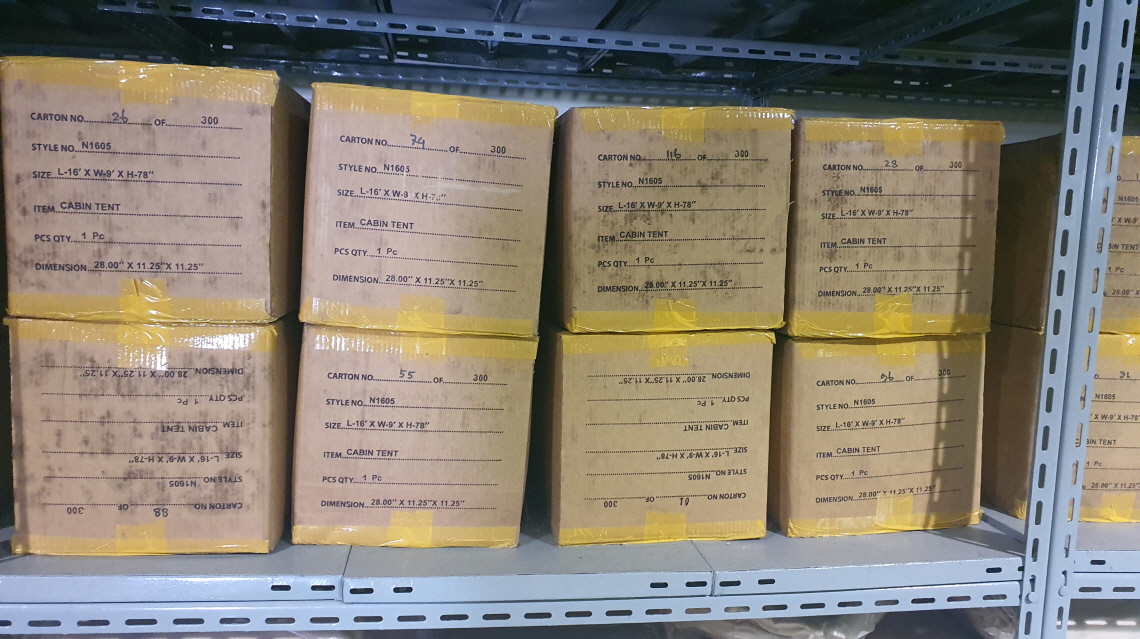 CARTON NO. 26 OF 300
STYLE NO. N1605
SIZE. L-16' X W-9' X H-78"
ITEM CABIN TENT
PCS QTY. 1 Pc
DIMENSION. 28.00" X 11.25"X 11.25"
CARTON NO. 74 OF 300
STYLE NO. N1605
SIZE. L-16' X W-9 X H-78"
ITEM CABIN TENT
PCS QTY. 1 Pc
DIMENSION. 28.00" X 11.25"X 11.25"
CARTON NO. 116 OF 300
STYLE NO. N1605
SIZE. L-16' X W-9' X H-78"
ITEM CABIN TENT
PCS QTY. 1 Pc
DIMENSION. 28.00" X 11.25"X 11.25"
CARTON NO. 28 OF 300
STYLE NO. N1605
SIZE. L-16' X W-9' X H-78"
ITEM CABIN TENT
PCS QTY. 1 Pc
DIMENSION. 28.00" X 11.25"X 11.25"
N1605
X W-9' X H-78"
TENT
1 Pc
28.00" X
CARTON NO. 88 OF 300
STYLE NO. N1605
SIZE. L-16' X W-9' X H-78"
ITEM CABIN TENT
PCS QTY 1 Pc
DIMENSION. 28.00" X 11.25"X 11.25"
CARTON NO. 55 OF 300
STYLE NO. N1605
SIZE. L-16' X W-9' X H-78"
ITEM CABIN TENT
PCS QTY. 1 Pc
DIMENSION. 28.00" X 11.25"X 11.25"
CARTON NO. OF 300
STYLE NO. N1605
SIZE. L-16' X W-9' X H-78"
ITEM CABIN TENT
PCS QTY. 1 Pc
DIMENSION. 28.00" X 11.25"X 11.25"
CARTON NO. 96 OF 300
STYLE NO. N1605
SIZE. L-16' X W-9' X H-78"
ITEM CABIN TENT
PCS QTY. 1 Pc
DIMENSION. 28.00" X 11.25"X 11.25"
N1605
X W-9' X H-78"
TENT
1 Pc
28.00" X 11.25"